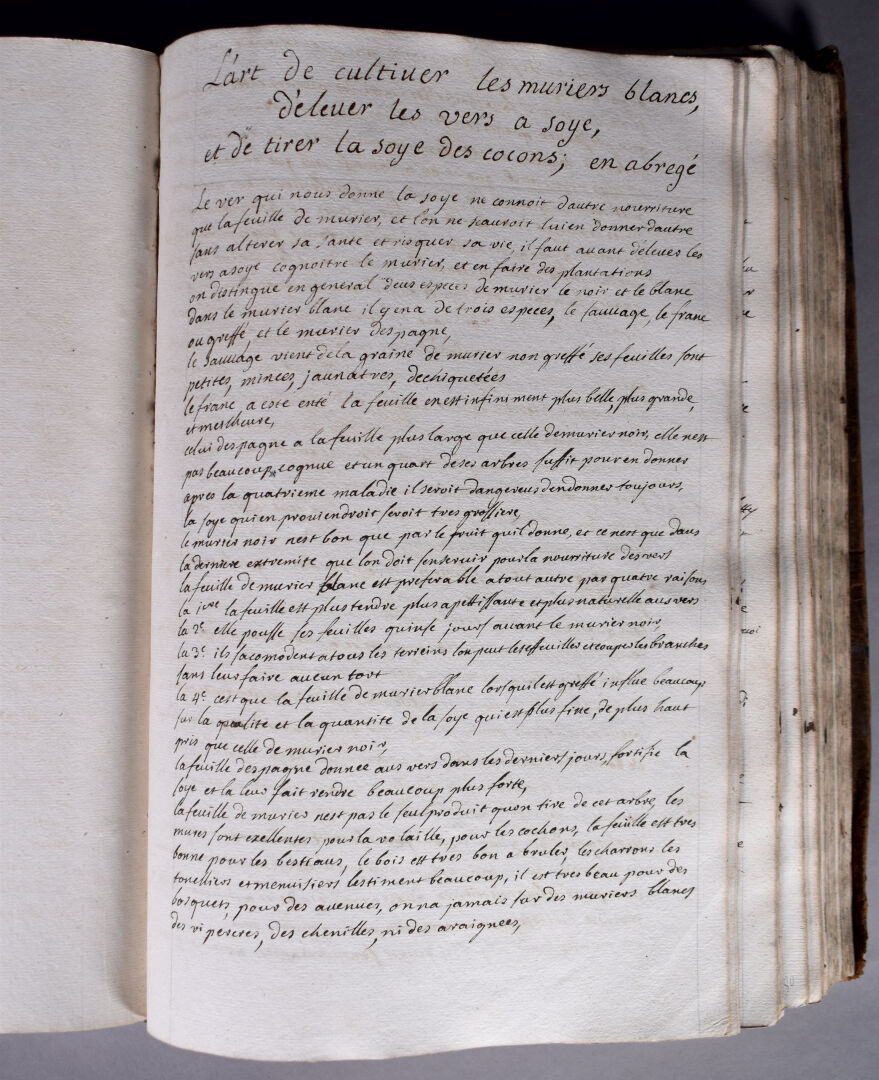 L'art de cultiver les muriers blancs,
d'elever les vers a soye,
et de tirer la soye des cocons; en abregé
Le ver qui nous donne la soye ne connoit dautre nourriture
que la feuille de murier, et lon ne scauroit luien donner dautre
sans alterer sa sante et risquer sa vie, il faut avant délever les
vers asoye cognoitre le murier, et en faire des plantations
on distingue en general deus especes de murier le noir et le blanc
dans le murier blanc il y ena de trois especes, le sauvage, le franc
ou greffé, et le murier despagne,
le sauvage vient dela graine de murier non greffé ses feuilles sont
petites, minces, jaunatres, dechiquetées
le franc a esté enté la feuille enest infiniment plus belle, plus grande,
et meilheure,
celui despagne a la feuille plus large que celle demurier noir, elle nest
pas beaucoup cognue et un quart deces arbres suffit pour en donner
apres la quatrieme maladie il seroit dangereus dendonner toujours,
la soye quien proviendroit seroit tres grossiere,
le murier noir nest bon que par le fruit quil donne, et ce nest que dans
la derniere extremite que lon doit senservir pour la nourriture des vers
la feuille de murier blanc est preferable atout autre par quatre raisons
la 1ere la feuille est plus tendre plus apettissante et plus naturelle aus vers
la 2e elle pousse ses feuilles quinse jours avant le murier noir,
la 3e ils sacomodent atous les terreins lon peut les effeuiller et couper les branches
sans leur faire aucun tort
la 4e cest que la feuille de murier blanc lorsquil est greffé influe beaucoup
sur la qualite et la quantite de la soye qui est plus fine, de plus haut
pris que celle de murier noir,
la feuille despagne donnee aus vers dans les derniers jours, fortifie la
soye et la leur fait rendre beaucoup plus forte,
la feuille de murier nest pas le seul produit quon tire de cet arbre, les
mures sont exellentes pour la volaille, pour les cochons, la feuille est tres
bonne pour les bestiaus, le bois est tres bon a bruler, les charrons les
tonelliers et menuisiers lestiment beaucoup, il est tres beau pour des
bosquets, pour des avenues, on na jamais sur des muriers blancs
des viperes, des chenilles, ni des araignees,